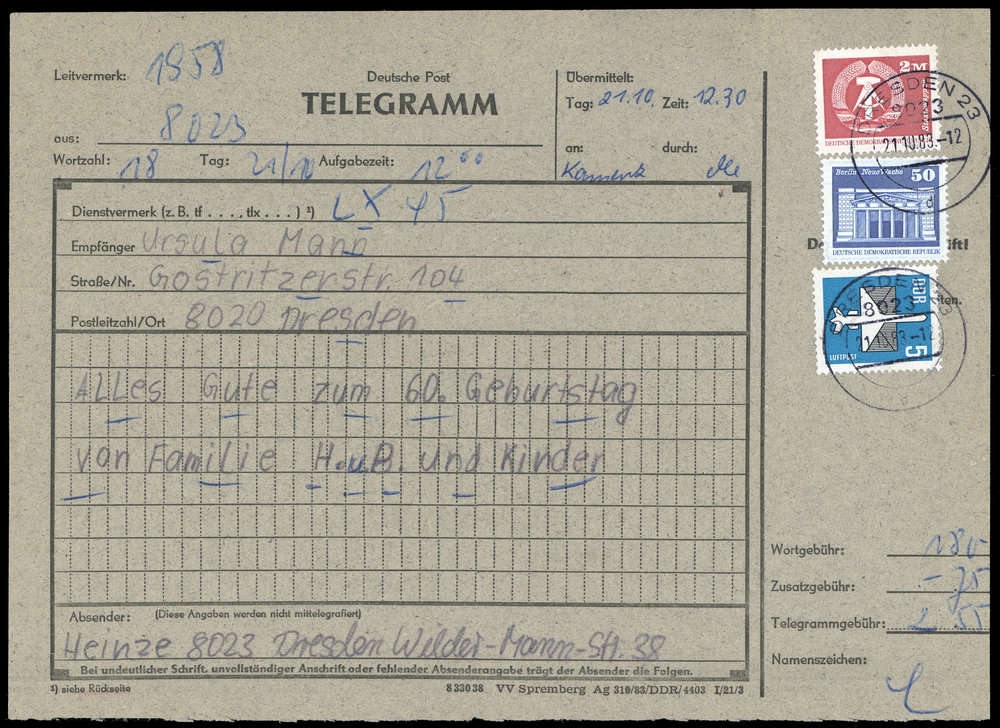 Leitvermerk: 1958
Deutsche Post
TELEGRAMM
aus: 8023
Wortzahl: 18 Tag: 21/10 Aufgabezeit: 12⁰⁰
Übermittelt:
Tag: 21.10. Zeit: 12.30
an: durch:
Kamenk
Dienstvermerk (z. B. tf . . . ., tlx . . . . ) ¹) LX 45
Empfänger Ursula Mann
Straße/Nr. Gostritzerstr. 104
Postleitzahl/Ort 8020 Dresden
Alles Gute zum 60. Geburtstag
von Familie H.u.B. und Kinder
Absender: (Diese Angaben werden nicht mittelegrafiert)
Heinze 8023 Dresden Wilder-Mann-Str. 38
Bei undeutlicher Schrift, unvollständiger Anschrift oder fehlender Absenderangabe trägt der Absender die Folgen.
¹) siehe Rückseite
8 330 38 VV Spremberg Ag 310/83/DDR/4403 I/21/3
2 M
DEUTSCHE DEMOKRATISCHE REPUBLIK
DRESDEN 23
8023
21.10.83.-12
Berlin Neue Wache 50
DEUTSCHE DEMOKRATISCHE REPUBLIK
DDR
LUFTPOST
5
DRESDEN 23
8023
21.10.83.-12
ift!
ten.
Wortgebühr: 180
Zusatzgebühr: - 75
Telegrammgebühr: 2 55
Namenszeichen: